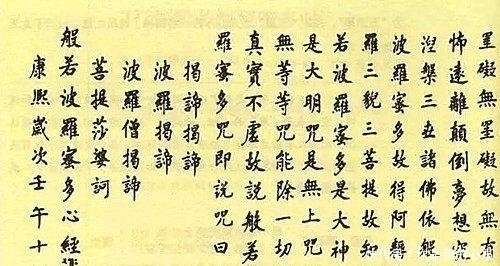 罣礙無罣礙故無有
怖遠離顛倒夢想究
涅槃三世諸佛依般
波羅蜜多故得阿耨
羅三藐三菩提故知
若波羅蜜多是大神
是大明咒是無上咒
無等等咒能除一切
真實不虛故說般若
羅蜜多咒即說咒曰
揭諦揭諦
波羅揭諦
波羅僧揭諦
菩提莎婆訶
般若波羅蜜多心經
康熙歲次壬午十